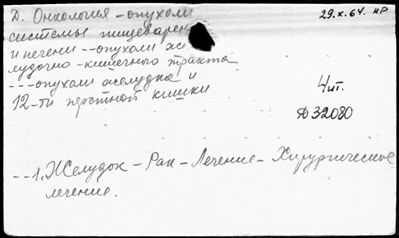 Д. Онкология - опухоли
системы пищеварен
и печени -- опухоли же
лудочно-кишечного тракта
--- опухоли желудка и
12-ти перстной кишки
29.X.64. НР
4 ит.
Д32080
--1. Желудок - Рак - Лечение - Хирургическое
лечение.